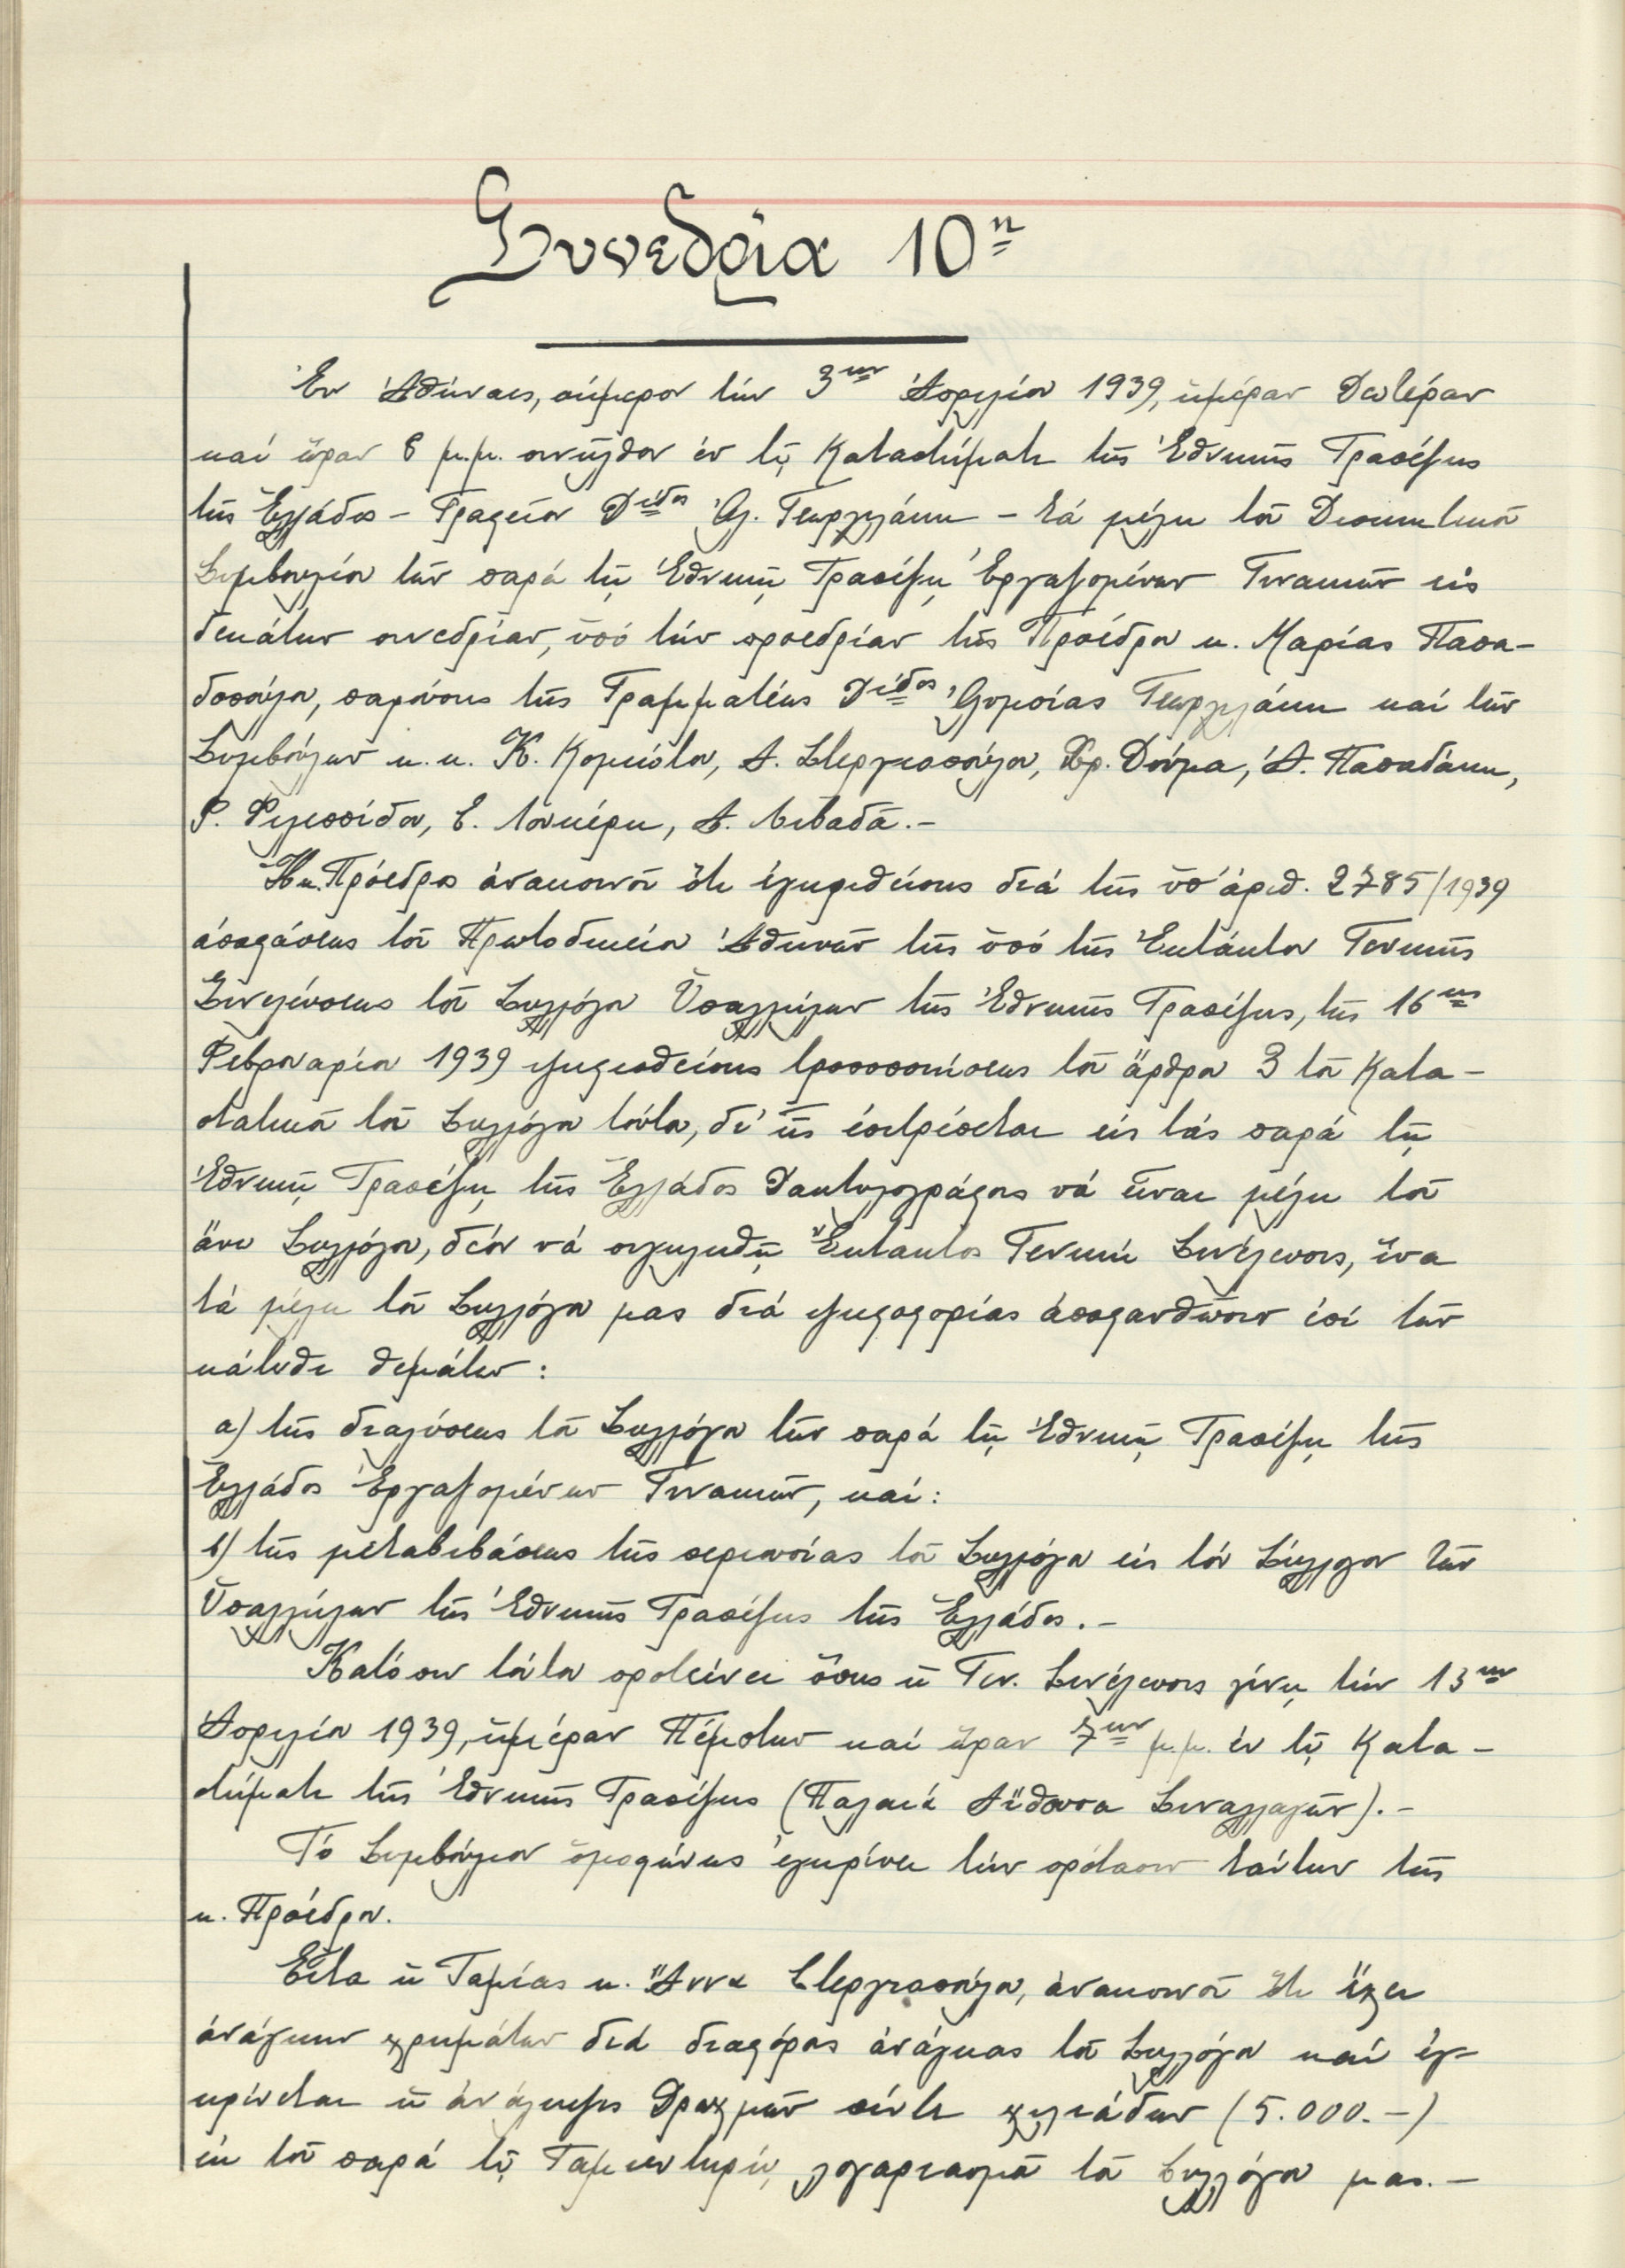 Συνεδρία 10η
Ἐν Ἀθήναις, σήμερον τήν 3ην Ἀπριλίου 1939, ἡμέραν Δευτέραν
καί ὥραν 6 μ.μ. συνῆλθον ἐν τῷ Καταστήματι τῆς Ἐθνικῆς Τραπέζης
τῆς Ἑλλάδος – Γραφεῖον Δίδος Ὀλ. Γεωργιλάκη – τά μέλη τοῦ Διοικητικοῦ
Συμβουλίου τῶν παρά τῇ Ἐθνικῇ Τραπέζῃ Ἐργαζομένων Γυναικῶν εἰς
δεκάτην συνεδρίαν, ὑπό τήν προεδρίαν τῆς Προέδρου κ. Μαρίας Παπα-
δοπούλου, παρούσης τῆς Γραμματέως Δίδος Ὀλυμπίας Γεωργιλάκη καί τῶν
Συμβούλων κ.κ. Κ. Κομιώτου, Α. Στεργιοπούλου, Χρ. Δούμα, Ἀ. Παπαδάκη,
Ρ. Φιλιππίδου, Ε. Λουκέρη, Α. Λιβαδᾶ.-
Ἡ κ. Πρόεδρος ἀνακοινοῖ ὅτι ἐγκριθείσης διά τῆς ὑπ' ἀριθ. 2785/1939
ἀποφάσεως τοῦ Πρωτοδικείου Ἀθηνῶν τῆς ὑπό τῆς Ἐκτάκτου Γενικῆς
Συνελεύσεως τοῦ Συλλόγου Ὑπαλλήλων τῆς Ἐθνικῆς Τραπέζης, τῆς 16ης
Φεβρουαρίου 1939 ψηφισθείσης τροποποιήσεως τοῦ ἄρθρου 3 τοῦ Κατα-
στατικοῦ τοῦ Συλλόγου τούτου, δι' ἧς ἐπιτρέπεται εἰς τάς παρά τῇ
Ἐθνικῇ Τραπέζῃ τῆς Ἑλλάδος Δακτυλογράφους νά εἶναι μέλη τοῦ
ἄνω Συλλόγου, δέον νά συγκληθῇ Ἔκτακτος Γενική Συνέλευσις, ἵνα
τά μέλη τοῦ Συλλόγου μας διά ψηφοφορίας ἀποφανθῶσιν ἐπί τῶν
κάτωθι θεμάτων:
α) τῆς διαλύσεως τοῦ Συλλόγου τῶν παρά τῇ Ἐθνικῇ Τραπέζῃ τῆς
Ἑλλάδος Ἐργαζομένων Γυναικῶν, καί:
β) τῆς μεταβιβάσεως τῆς περιουσίας τοῦ Συλλόγου εἰς τόν Σύλλογον τῶν
Ὑπαλλήλων τῆς Ἐθνικῆς Τραπέζης τῆς Ἑλλάδος.-
Κατόπιν τούτου προτείνει ὅπως ἡ Γεν. Συνέλευσις γίνῃ τήν 13ην
Ἀπριλίου 1939, ἡμέραν Πέμπτην καί ὥραν 7ην μ.μ. ἐν τῷ Κατα-
στήματι τῆς Ἐθνικῆς Τραπέζης (Παλαιά Αἴθουσα Συναλλαγῶν).-
Τό Συμβούλιον ὁμοφώνως ἐγκρίνει τήν πρότασιν ταύτην τῆς
κ. Προέδρου.
Εἶτα ἡ Ταμίας κ. Ἄννα Στεργιοπούλου, ἀνακοινοῖ ὅτι ἔχει
ἀνάγκην χρημάτων διά διαφόρους ἀνάγκας τοῦ Συλλόγου καί ἐγ-
κρίνεται ἡ ἀνάληψις Δραχμῶν πέντε χιλιάδων (5.000.-)
ἐκ τοῦ παρά τῷ Ταμιευτηρίῳ λογαριασμοῦ τοῦ Συλλόγου μας.-